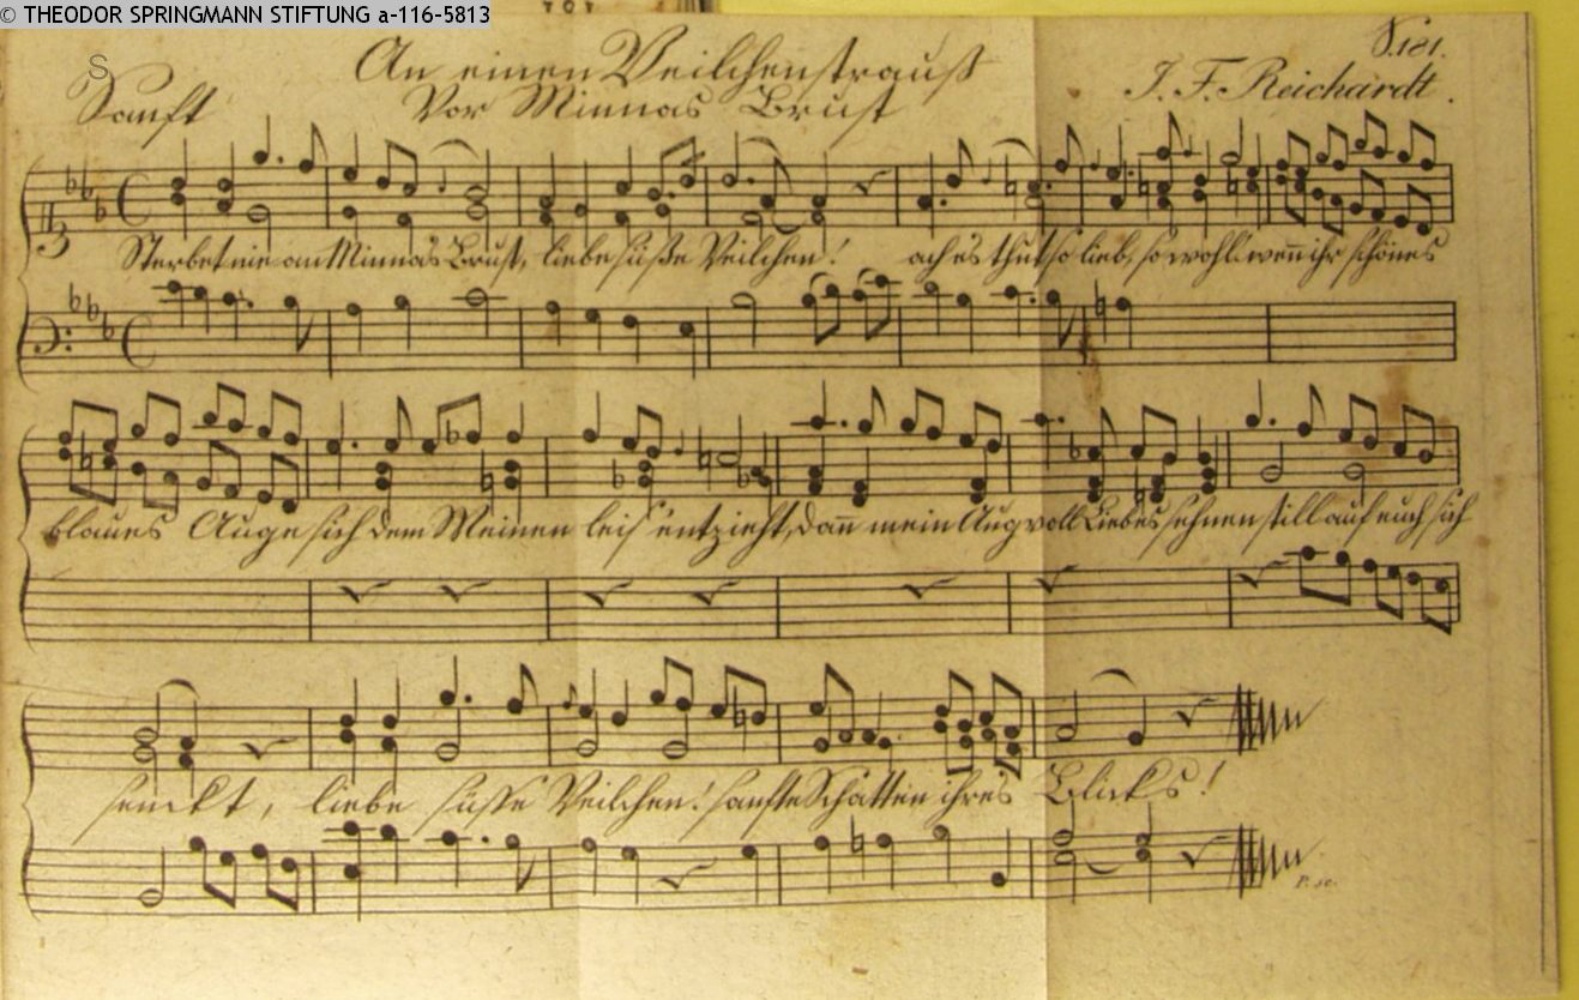 © THEODOR SPRINGMANN STIFTUNG a-116-5813
S.181.
An einen Veilchenstrauß
Vor Minnas Brust
Sanft
J. F. Reichardt.
Sterbet nie an Minnas Brust, liebe süße Veilchen! ach es thut so lieb, so wohl wen̄ ihr schönes
blaues Auge sich dem Meinen leis' entzieht, dan̄ mein Aug voll Liebes sehnen still auf euch sich
senckt, liebe süsse Veilchen! sanfte Schatten ihres Blicks!